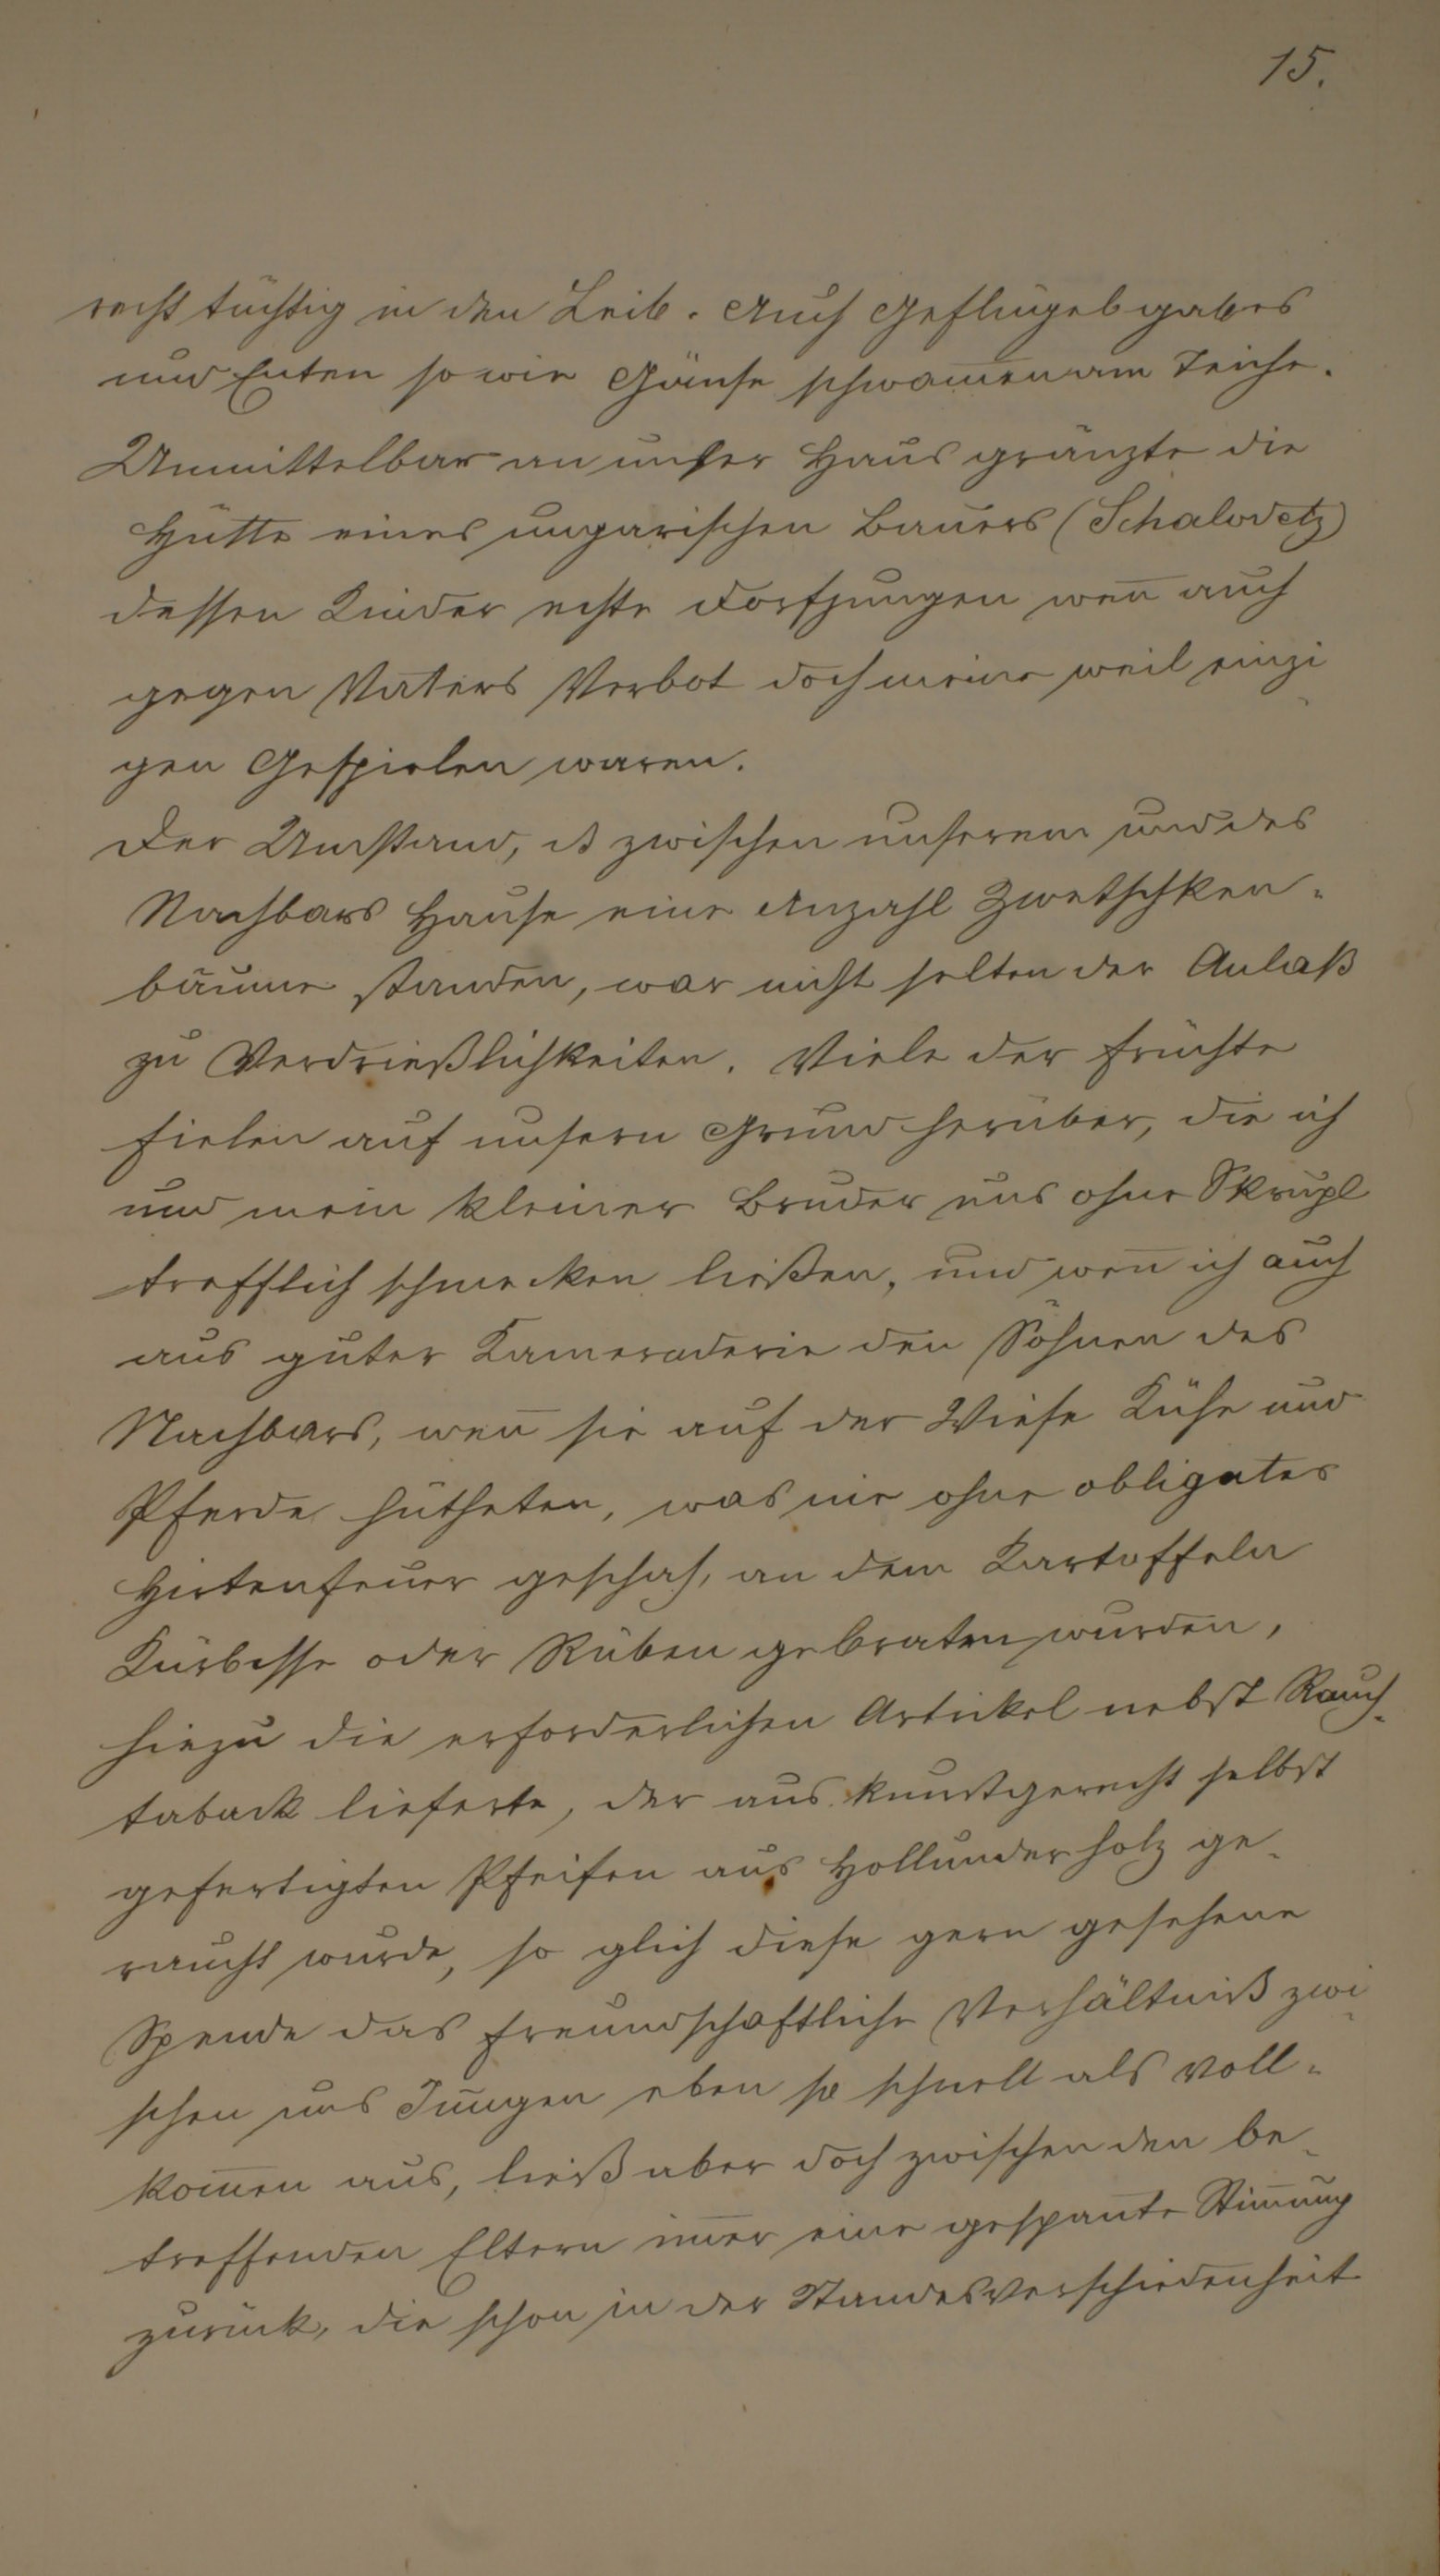 15.
recht tüchtig in den Leib. Auch Geflügel gab es
und Enten so wie Gänse schwam̅en am Teiche.
Unmittelbar an unser Haus gränzte die
Hütte eines ungarischen Bauers (Schalovetz)
dessen Kinder echte Dorfjungen wen̅ auch
gegen Vaters Verbot doch meine weil einzi-
gen Gespielen waren.
Der Umstand, ds zwischen unserem und des
Nachbars Hause eine Anzahl Zwetschken-
bäume standen, war nicht selten der Anlaß
zu Verdrießlichkeiten. Viele der Früchte
fielen auf unsern Grund herüber, die ich
und mein kleiner Bruder uns ohne Skrupl
trefflich schmecken ließen, und wen̅ ich auch
aus guter Kameraderie den Söhnen des
Nachbars, wen̅ sie auf der Wiese Kühe und
Pferde hütheten, was nie ohne obligates
Hirtenfeuer geschah, an dem Kartoffeln
Kürbisse oder Rüben gebraten wurden,
hiezu die erforderlichen Artikel nebst Rauch-
taback lieferte, der aus kunstgerecht selbst
gefertigten Pfeifen aus Hollunderholz ge-
raucht wurde, so glich diese gern gesehene
Spende das freundschaftliche Verhältniß zwi-
schen uns Jungen eben so schnell als voll-
kom̅en aus, ließ aber doch zwischen den be-
treffenden Eltern im̅er eine gespan̅te Stim̅ung
zurück, die schon in der Standesverschiedenheit